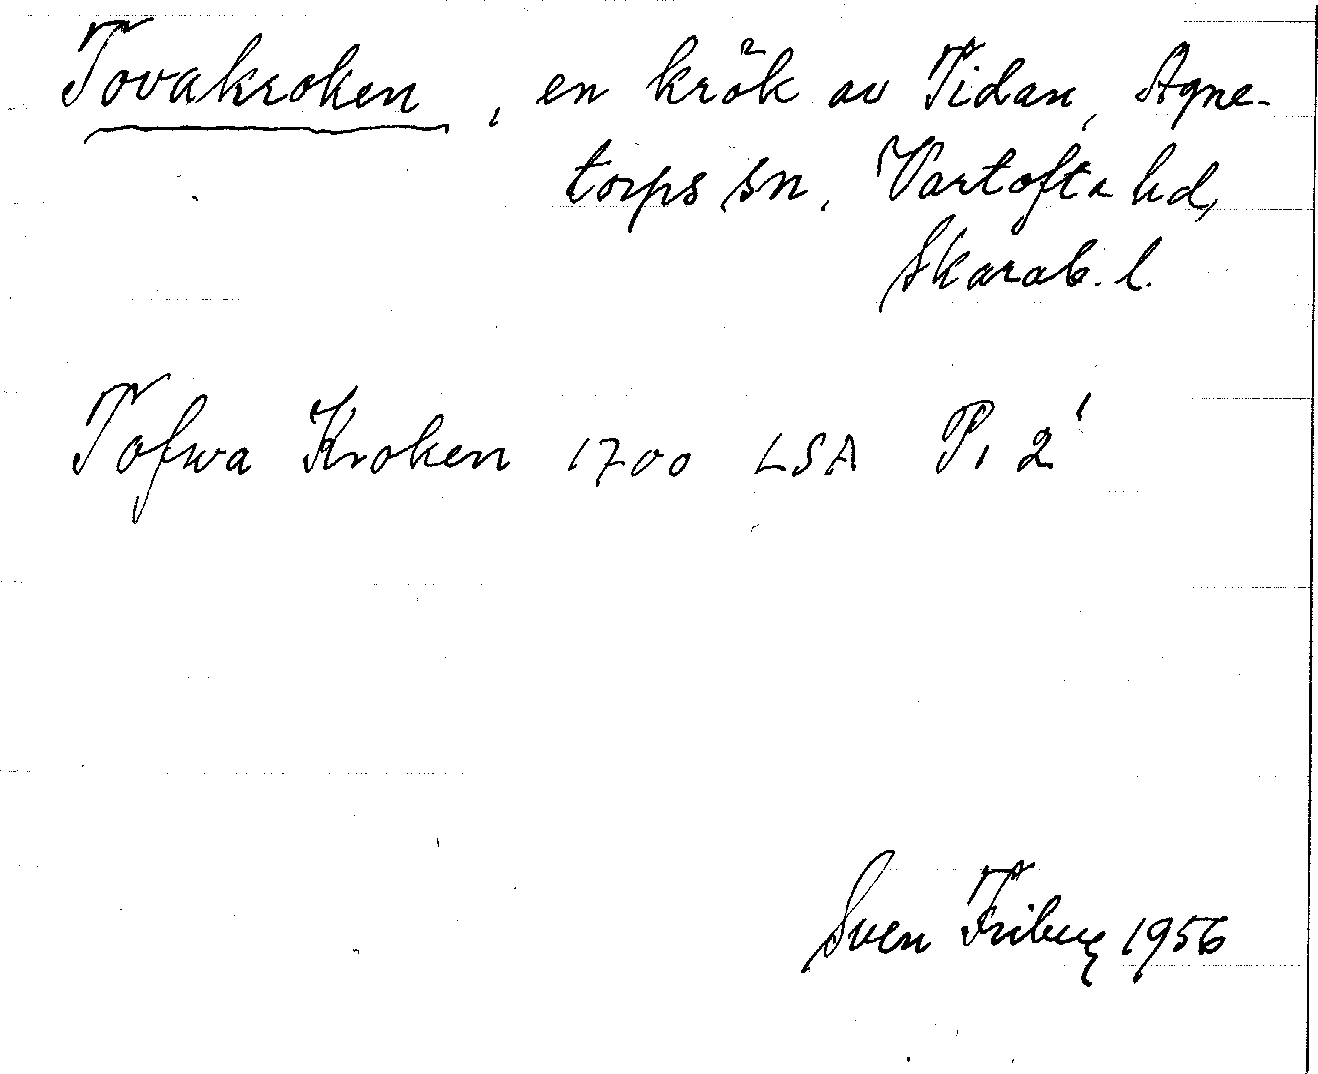 Tovakroken, en krök av Tidan, Agne-
torps sn, Vartofta hd,
Skarab. l.
Tofwa Kroken 1700 LSA P, 2'
Sven Friberg 1956